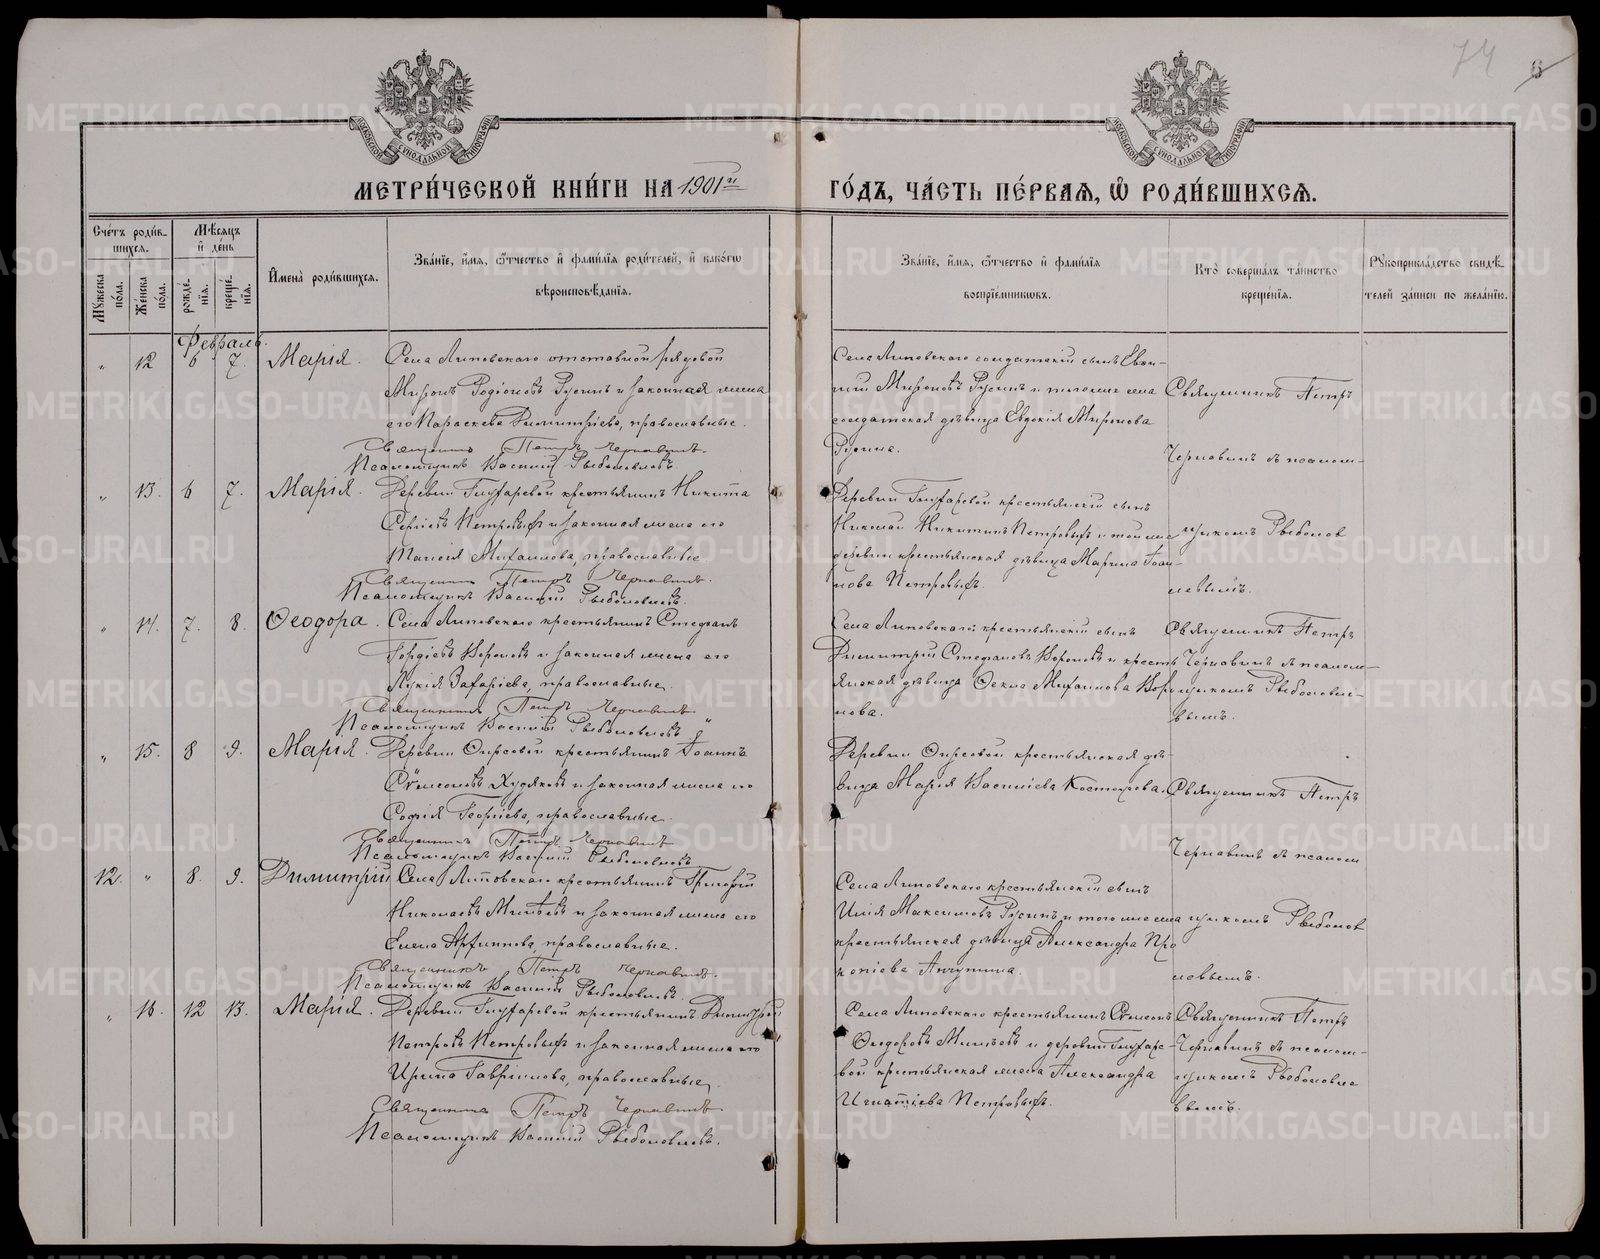 74
6
МЕТРИ́ЧЕСКОЙ КНИ́ГИ НА 1901й ГО́ДЪ, ЧА́СТЬ ПЕ́РВАѦ, Ѿ РОДИ́ВШИХСѦ.
Сче́тъ роди́в-
шихся.
Мѣ́сяцъ
и҆ де́нь
Мꙋжеска по́ла.
Же́нска по́ла.
рожде́-
нїѧ.
креще́-
нїѧ.
И҆мена̀ роди́вшихся.
Зва́нїе, и҆́мя, ѻ҆́тчество и҆ фами́лїя роди́телей, и҆ како́гѡ
вѣроисповѣ́данїя.
Зва́нїе, и҆́мя, ѻ҆́тчество и҆ фами́лїя
воспрїе́мниковъ.
Кто̀ соверша́лъ та́инство
креще́нїя.
Рꙋкоприкла́дство свидѣ́-
телей за́писи по жела́нїю.
Февраль.
" 12 6 7. Марія.
Села Липовскаго отставной рядовой
Миронъ Родіоновъ Русинъ и законная жена
его Параскева Димитріева, православные.
Священникъ Петръ Чернавинъ.
Псаломщикъ Василій Рыболовлевъ
Села Липовскаго солдатскій сынъ Евѳи-
мій Мироновъ Русинъ и того же села
солдатская дѣвица Евдокія Миронова
Русина.
Священникъ Петръ
Чернавинъ съ псалом-
" 13. 6 7. Марія.
Деревни Глухаревой крестьянинъ Никита
Сергіевъ Петровыхъ и законная жена его
Михаилова, православные
Священникъ Петръ Чернавинъ.
Псаломщикъ Василій Рыболовлевъ.
Деревни Глухаревой крестьянскій сынъ
Николай Никитинъ Петровыхъ и той же
деревни крестьянская дѣвица Марина Іоан-
нова Петровыхъ.
щикомъ Рыболов
левымъ.
" 14. 7. 8. Ѳеодора.
Села Липовскаго крестьянинъ Стефанъ
Гордіевъ Вороновъ и законная жена его
Лукія Захаріева, православные.
Священникъ Петръ Чернавинъ.
Псаломщикъ Василій Рыболовлевъ
Села Липовскаго крестьянскій сынъ
Димитрій Стефановъ Вороновъ и кресть
янская дѣвица Ѳекла Михаилова Воро
нова.
Священникъ Петръ
Чернавинъ съ псалом-
щикомъ Рыболовле-
вымъ.
" 15. 8 9. Марія.
Деревни Фирсовой крестьянинъ Іоаннъ
Сѵмеоновъ Худяковъ и законная жена его
Софія Георгіева, православные.
Священникъ Петръ Чернавинъ
Псаломщикъ Василій Рыболовлевъ
Деревни Фирсовой крестьянская дѣ-
вица Марія Василіева Костылова.
Священникъ Петръ
Чернавинъ съ псалом
12. " 8. 9. Димитрій
Села Липовскаго крестьянинъ Григорій
Николаевъ Минѣевъ и законная жена его
Елена Архиппова, православные.
Священникъ Петръ Чернавинъ.
Псаломщикъ Василій Рыболовлевъ.
Села Липовскаго крестьянскій сынъ
Илія Максимовъ Русинъ и того же села
крестьянская дѣвица Александра Про
копіева
щикомъ Рыболов
левымъ.
" 16. 12 13. Марія.
Деревни Глухаревой крестьянинъ Димитрій
Петровъ Петровыхъ и законная жена его
Ирина Гавріилова, православные.
Священникъ Петръ Чернавинъ
Псаломщикъ Василій Рыболовлевъ.
Села Липовскаго крестьянинъ Сѵмеонъ
Ѳеодоровъ Минѣевъ и деревни Глухаре-
вой крестьянская жена Александра
Игнатіева Петровыхъ.
Священникъ Петръ
Чернавинъ съ псалом-
щикомъ Рыболовле
вымъ.
METRIKI.GASO-URAL.RU